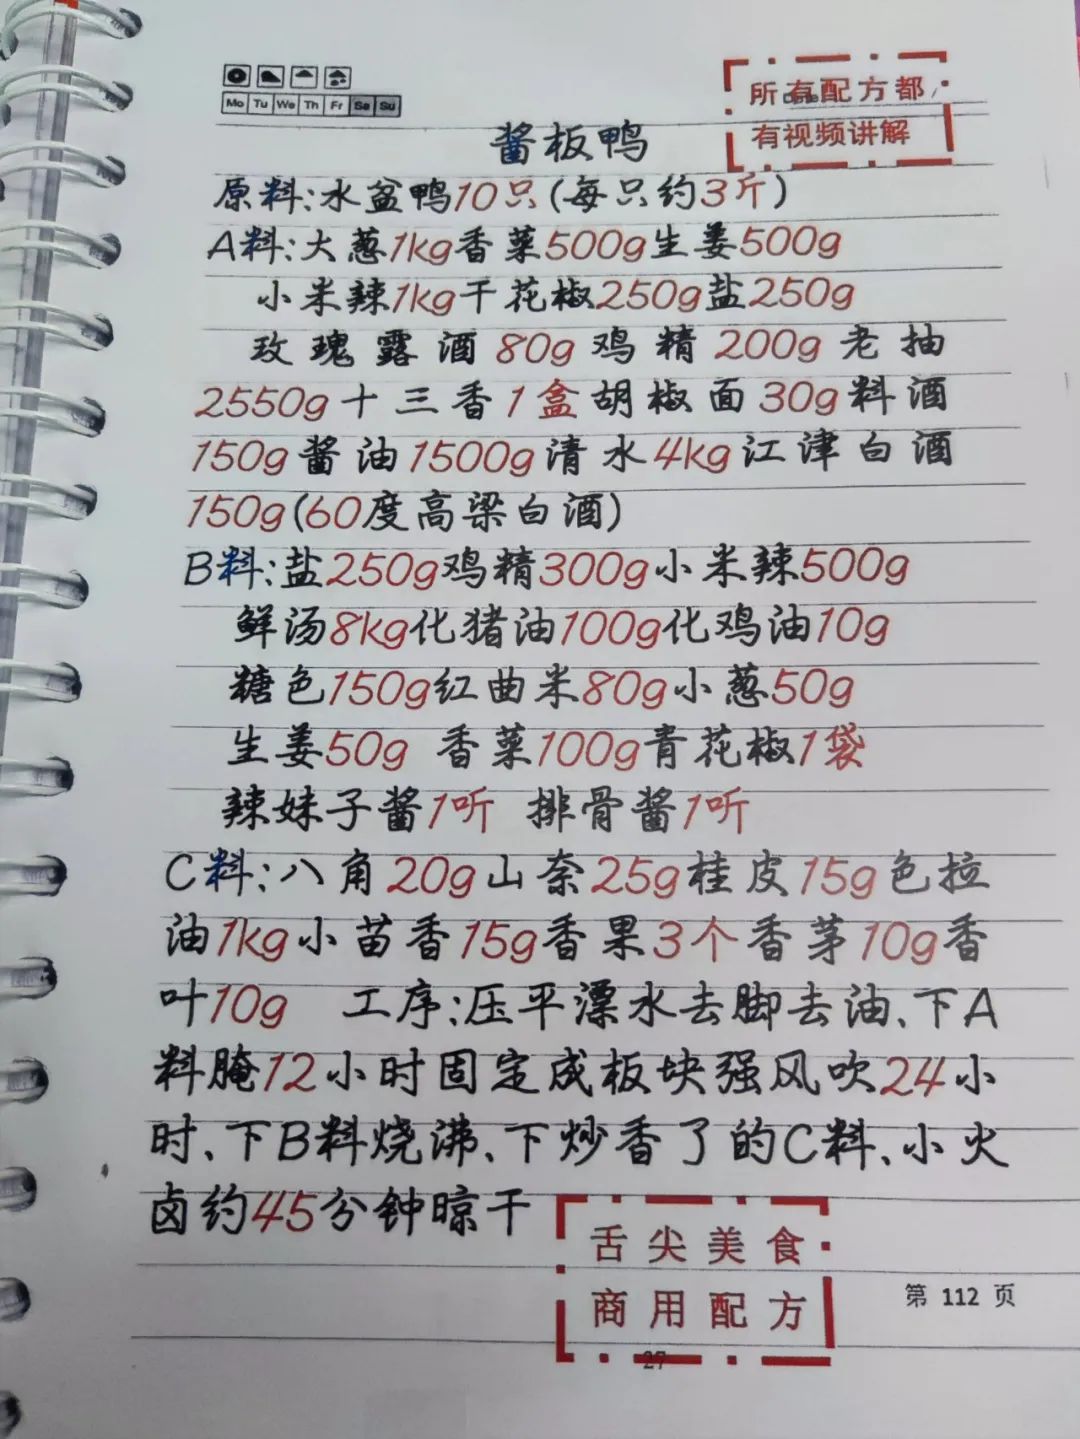 Mo Tu We Th Fr Sa Su
所有配方都
有视频讲解
酱板鸭
原料:水盆鸭10只(每只约3斤)
A料:大葱1kg香菜500g生姜500g
小米辣1kg干花椒250g盐250g
玫瑰露酒80g鸡精200g老抽
2550g十三香1盒胡椒面30g料酒
150g酱油1500g清水4kg江津白酒
150g(60度高梁白酒)
B料:盐250g鸡精300g小米辣500g
鲜汤8kg化猪油100g化鸡油10g
糖色150g红曲米80g小葱50g
生姜50g 香菜100g青花椒1袋
辣妹子酱1听 排骨酱1听
C料:八角20g山奈25g桂皮15g色拉
油1kg小苗香15g香果3个香茅10g香
叶10g 工序:压平漂水去脚去油、下A
料腌12小时固定成板块强风吹24小
时、下B料烧沸、下炒香了的C料、小火
卤约45分钟晾干
舌尖美食
商用配方
第 112 页
27